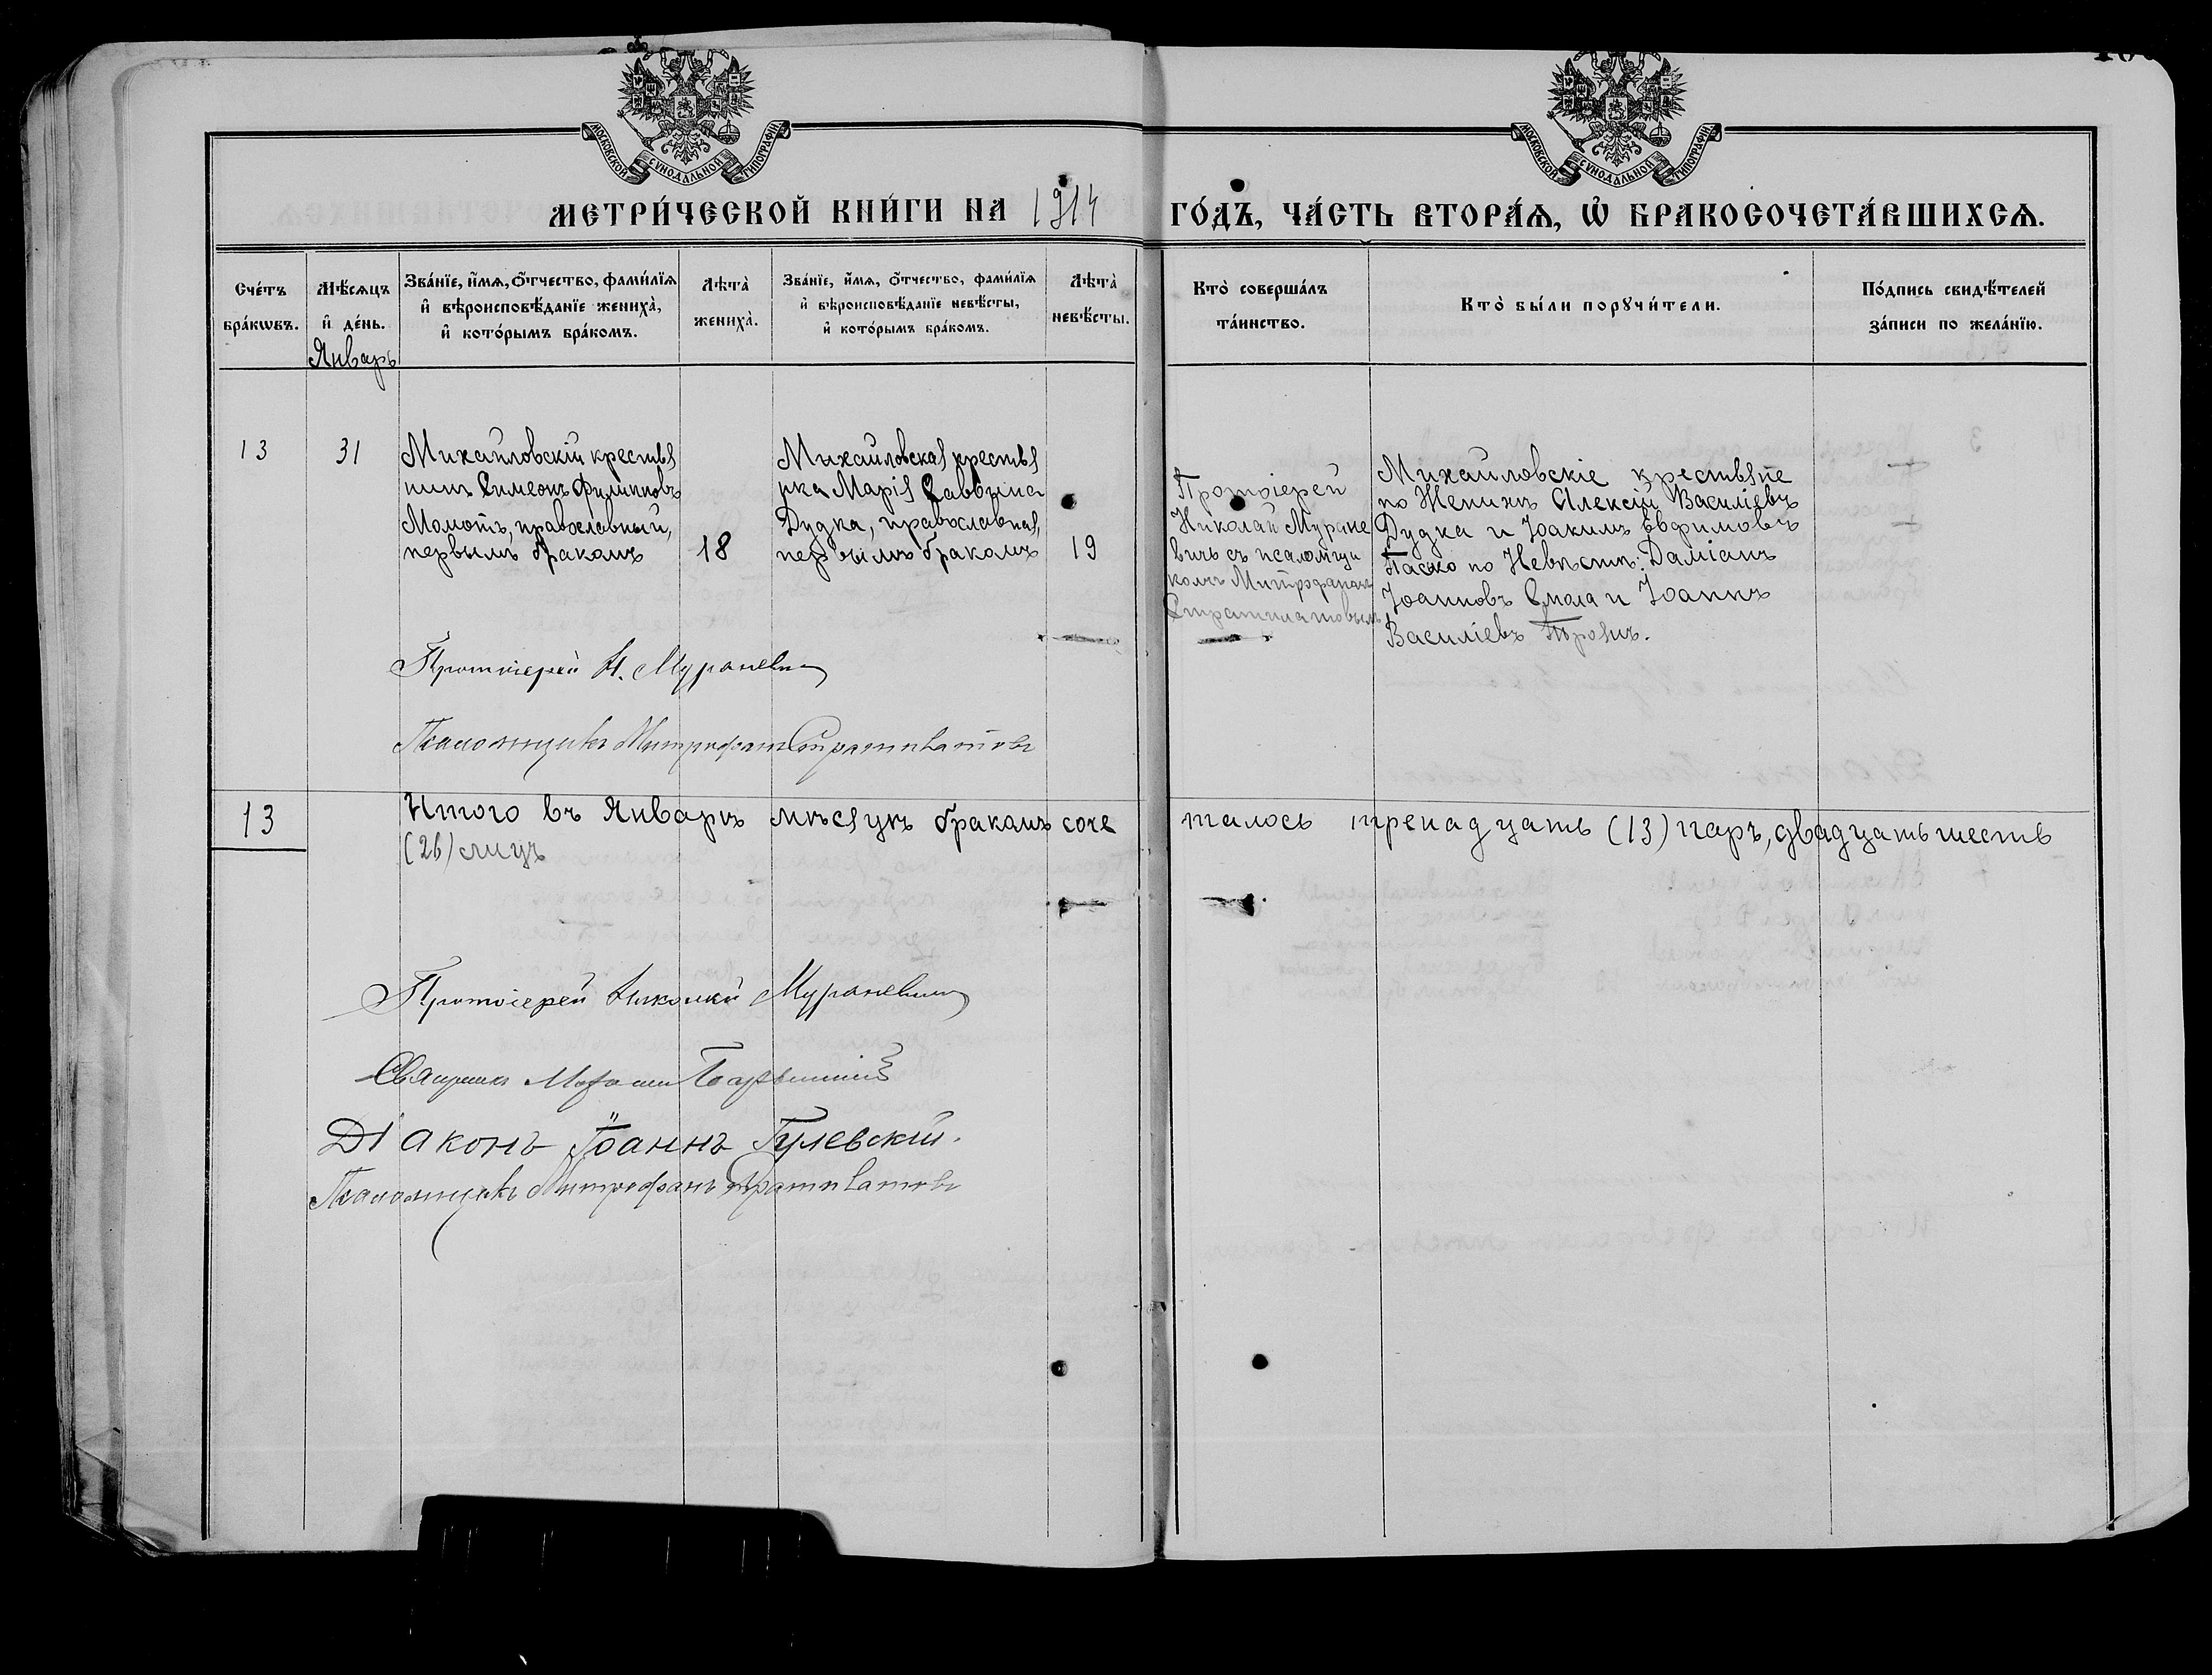 МОСКОВСКОЙ СУНОДАЛЬНОЙ ТИПОГРАФІИ
МОСКОВСКОЙ СУНОДАЛЬНОЙ ТИПОГРАФІИ
МЕТРИ́ЧЕСКОЙ КНИ́ГИ НА 1914 ГО́ДЪ, ЧА́СТЬ ВТОРА́Ѧ, Ѽ БРАКОСОЧЕТА́ВШИХСѦ.
Сче́тъ бра́кѡвъ.
Мѣ́сѧцъ и҆ де́нь.
Январь
Зва́нїе, и҆́мѧ, о҆́тчество, фами́лїѧ
и҆ вѣроисповѣ́данїе жениха̀,
и҆ кото́рымъ бра́комъ.
Лѣта̀ жениха̀.
Зва́нїе, и҆́мѧ, о҆́тчество, фами́лїѧ
и҆ вѣроисповѣ́данїе невѣ́сты,
и҆ кото́рымъ бра́комъ.
Лѣта̀ невѣ́сты.
Кто̀ соверша́лъ
та́инство.
Кто̀ бы́ли порꙋчи́тели.
По́дпись свидѣ́телей
за́писи по жела́нїю.
13
31
Михайловскій крестья
нинъ Симеонъ Филипповъ
Момотъ, православный,
первымъ бракомъ
18
Михайловская крестья
нка Марія Саввина
Дудка, православная,
первымъ бракомъ
19
Протоіерей
Николай Муране
вичъ съ псаломщи
комъ Митрофаномъ
Стратилатовымъ
Михайловскіе крестьяне
по Женихѣ Алексій Василіевъ
Дудка и Іоакимъ Евфимовъ
Паско по Невѣстѣ: Даміанъ
Іоанновъ Смола и Іоаннъ
Василіевъ
Протоіерей Н. Мураневич
Псаломщикъ Митрофанъ Стратилатовъ
13
Итого въ Январѣ мѣсяцѣ бракомъ соче талось тренадцать (13) паръ, двадцать шесть
(26) лицъ
Протоіерей Николай Мураневич
Діаконъ Іоаннъ Гулевскій.
Псаломщикъ Митрофанъ Стратилатовъ